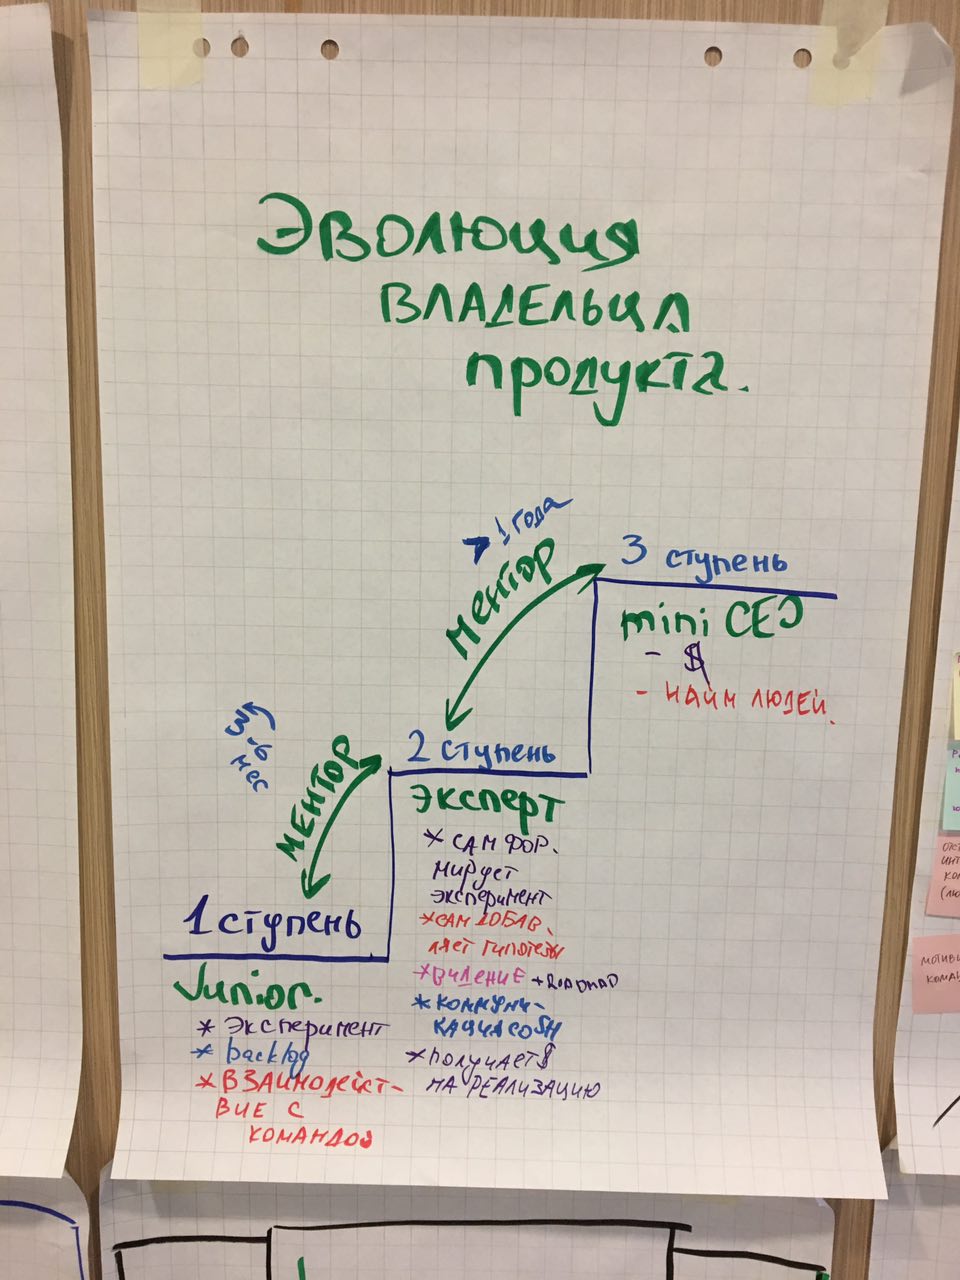 Эволюция
владельца
продукта.
> 1 года
ментор
3 ступень
mini CEO
- $
- найм людей.
3-6
мес
ментор
2 ступень
эксперт
* сам фор.
мирует
эксперимент
* сам добав.
ляет гипотезы
* видение + roadmap
* коммуни-
кация со SH
* получает $
на реализацию
1 ступень
Junior.
* эксперимент
* backlog
* взаимодейст-
вие с
командой
мотиви